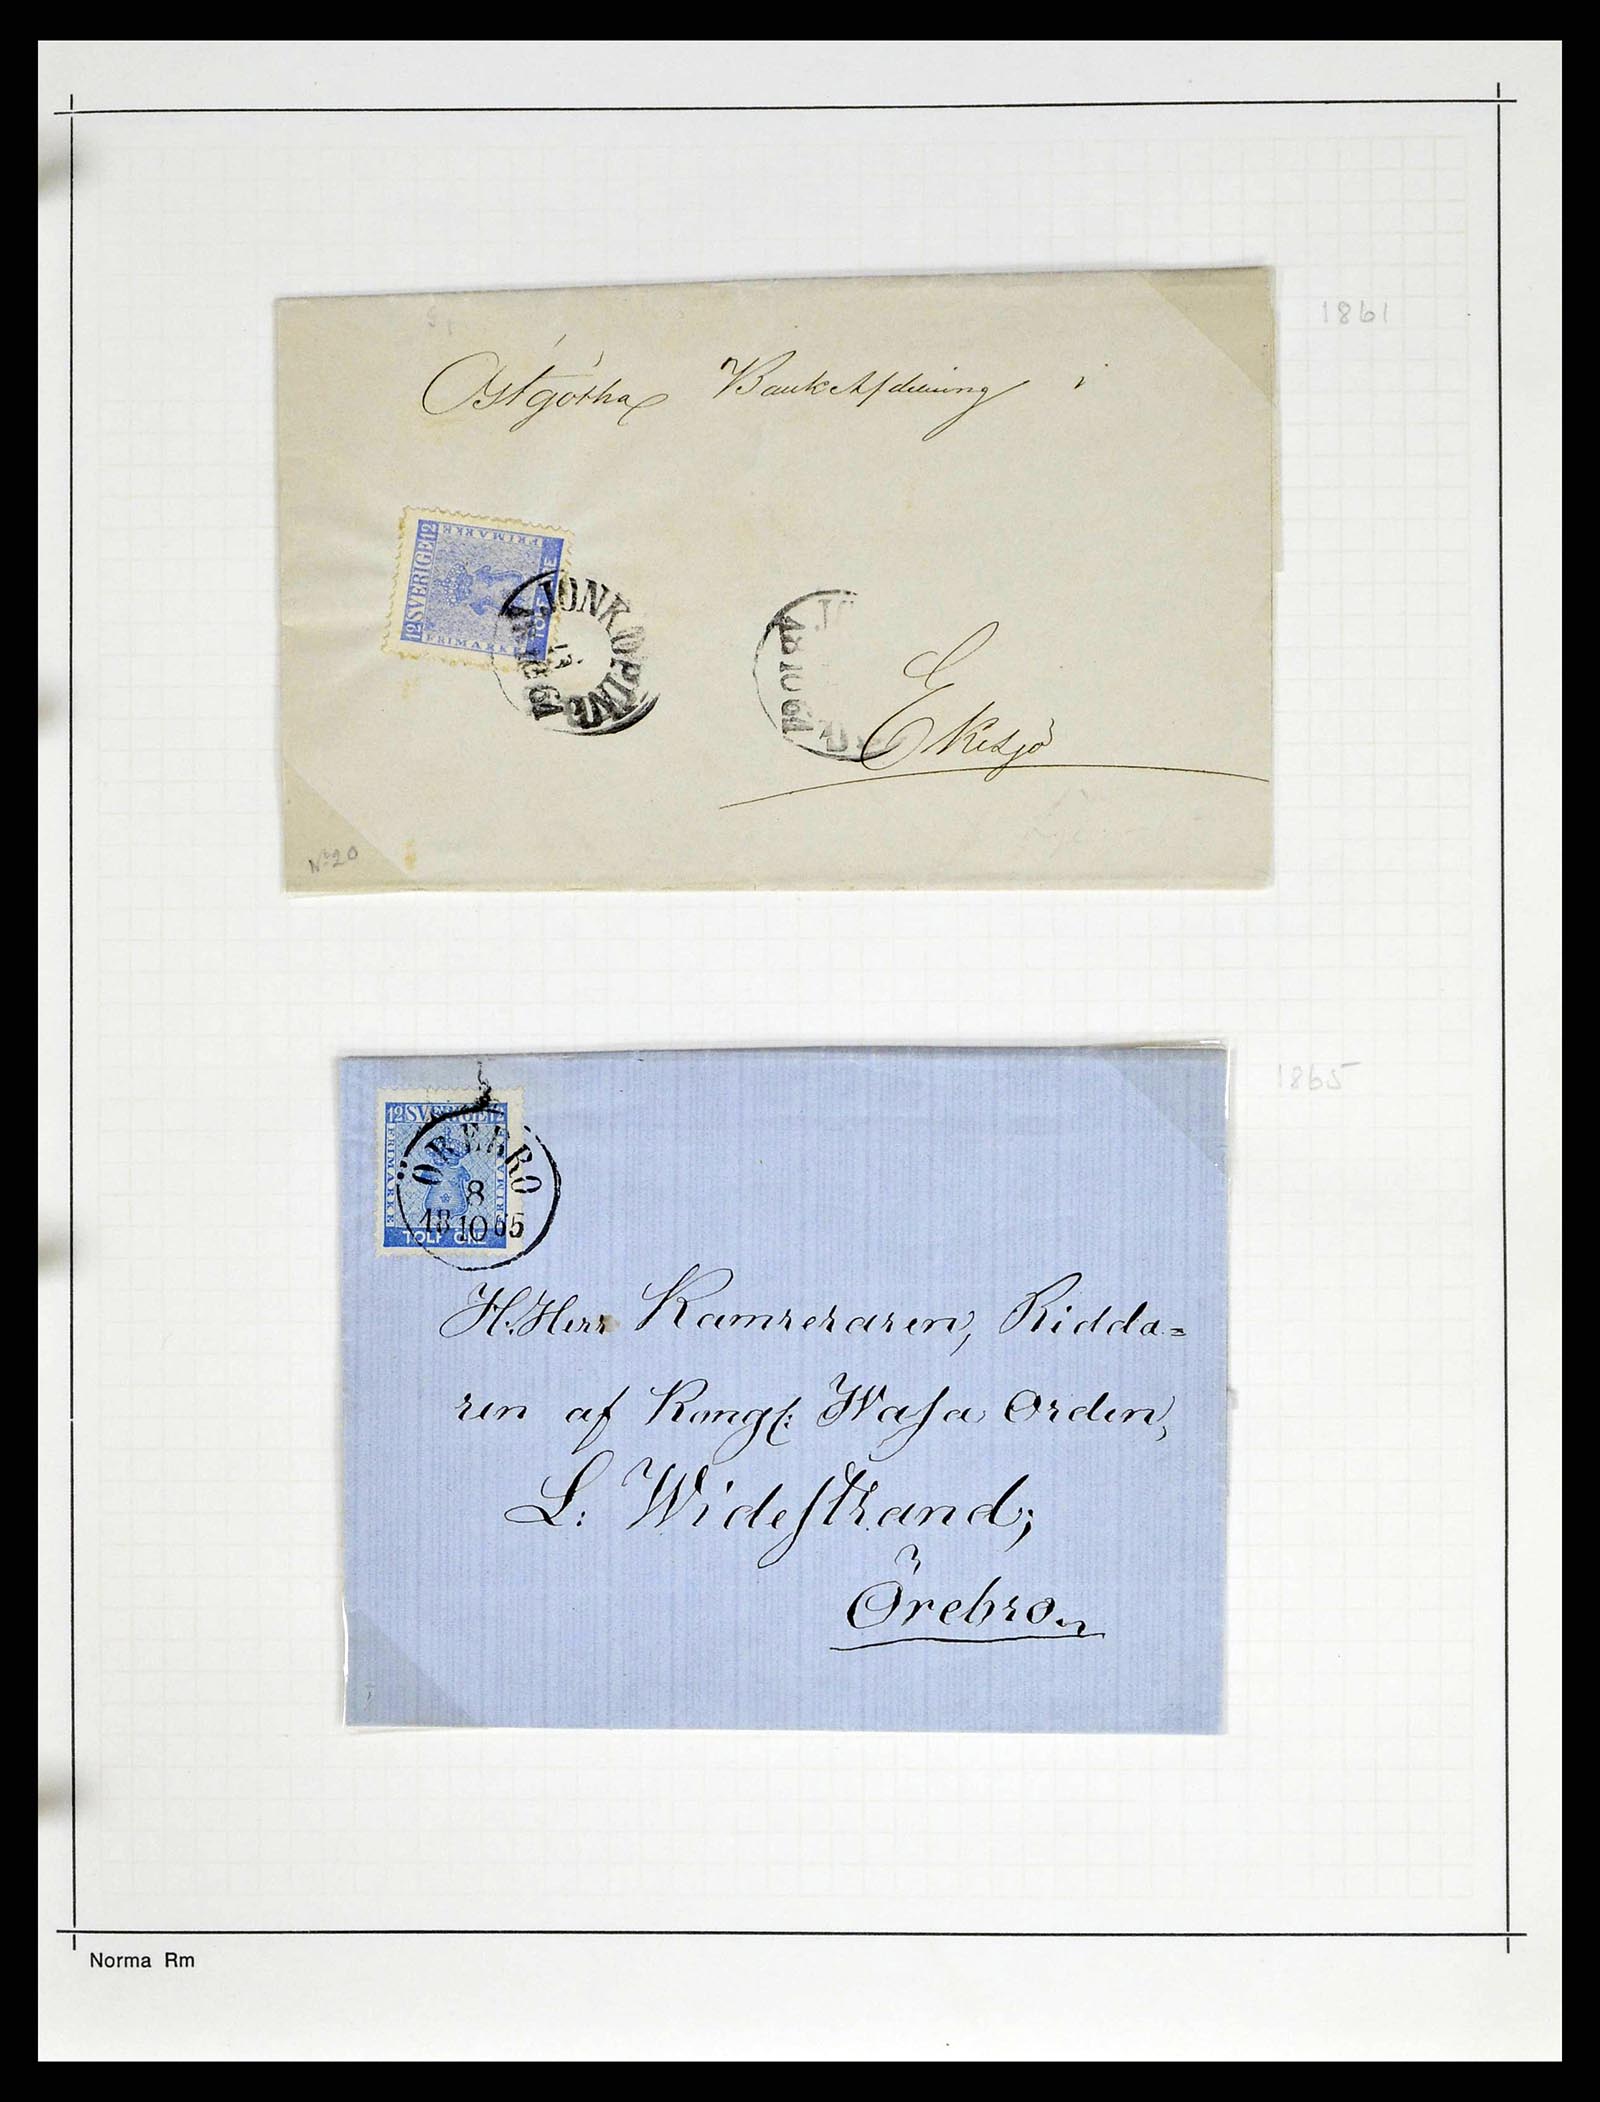 1861
Östgötha Bank Afdelning i
12 SVERIGE 12
FRIMÄRKE
FRIMÄRKE
TOLF
JÖNKÖPING
18 10 61
Eksjö
No 20
1865
12 SVERIGE 12
FRIMÄRKE
FRIMÄRKE
TOLF ÖRE
ÖREBRO
8
18 10 65
H. Herr Kamreraren, Ridda=
ren af Kongl: Wasa Orden,
L: Widestrand,
Örebro
Norma Rm